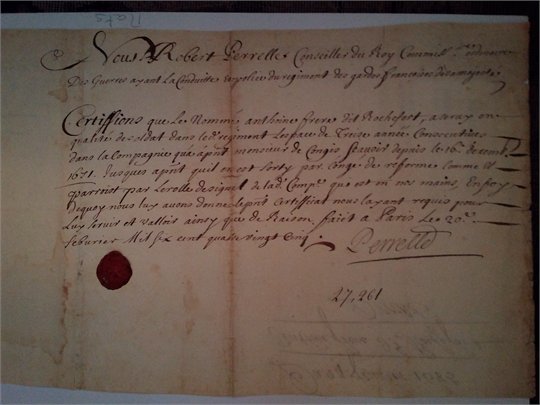 Nous Robert Perrelle Conseiller du Roy Commiss.re ordinaire
Des Guerres ayant La Conduitte et police du regiment des gardes francoises de sa majesté
Certiffions que Le Nommé anthoine frere dit Rochefort, a seruy en
qualité de soldat dans le d. regiment Lespace de Treize année Consecutiues
dans la Compagnie qua a pnt monsieur de Congis scauoir depuis le 16.e decemb.
1671. Jusques a pnt quil en est sorty par Congé de reforme comme Il
paroist par le rolle de signé de lad. Comp.e que est in nos mains, En foy
Dequoy nous luy auons donné le pnt Certifficat nous layant requis pour
Luy seruir et Valloir ainsy que de Raison. faict a Paris Le 20.e
feburier Mil six cent quatre vingt Cinq.
Perrelle
27,261